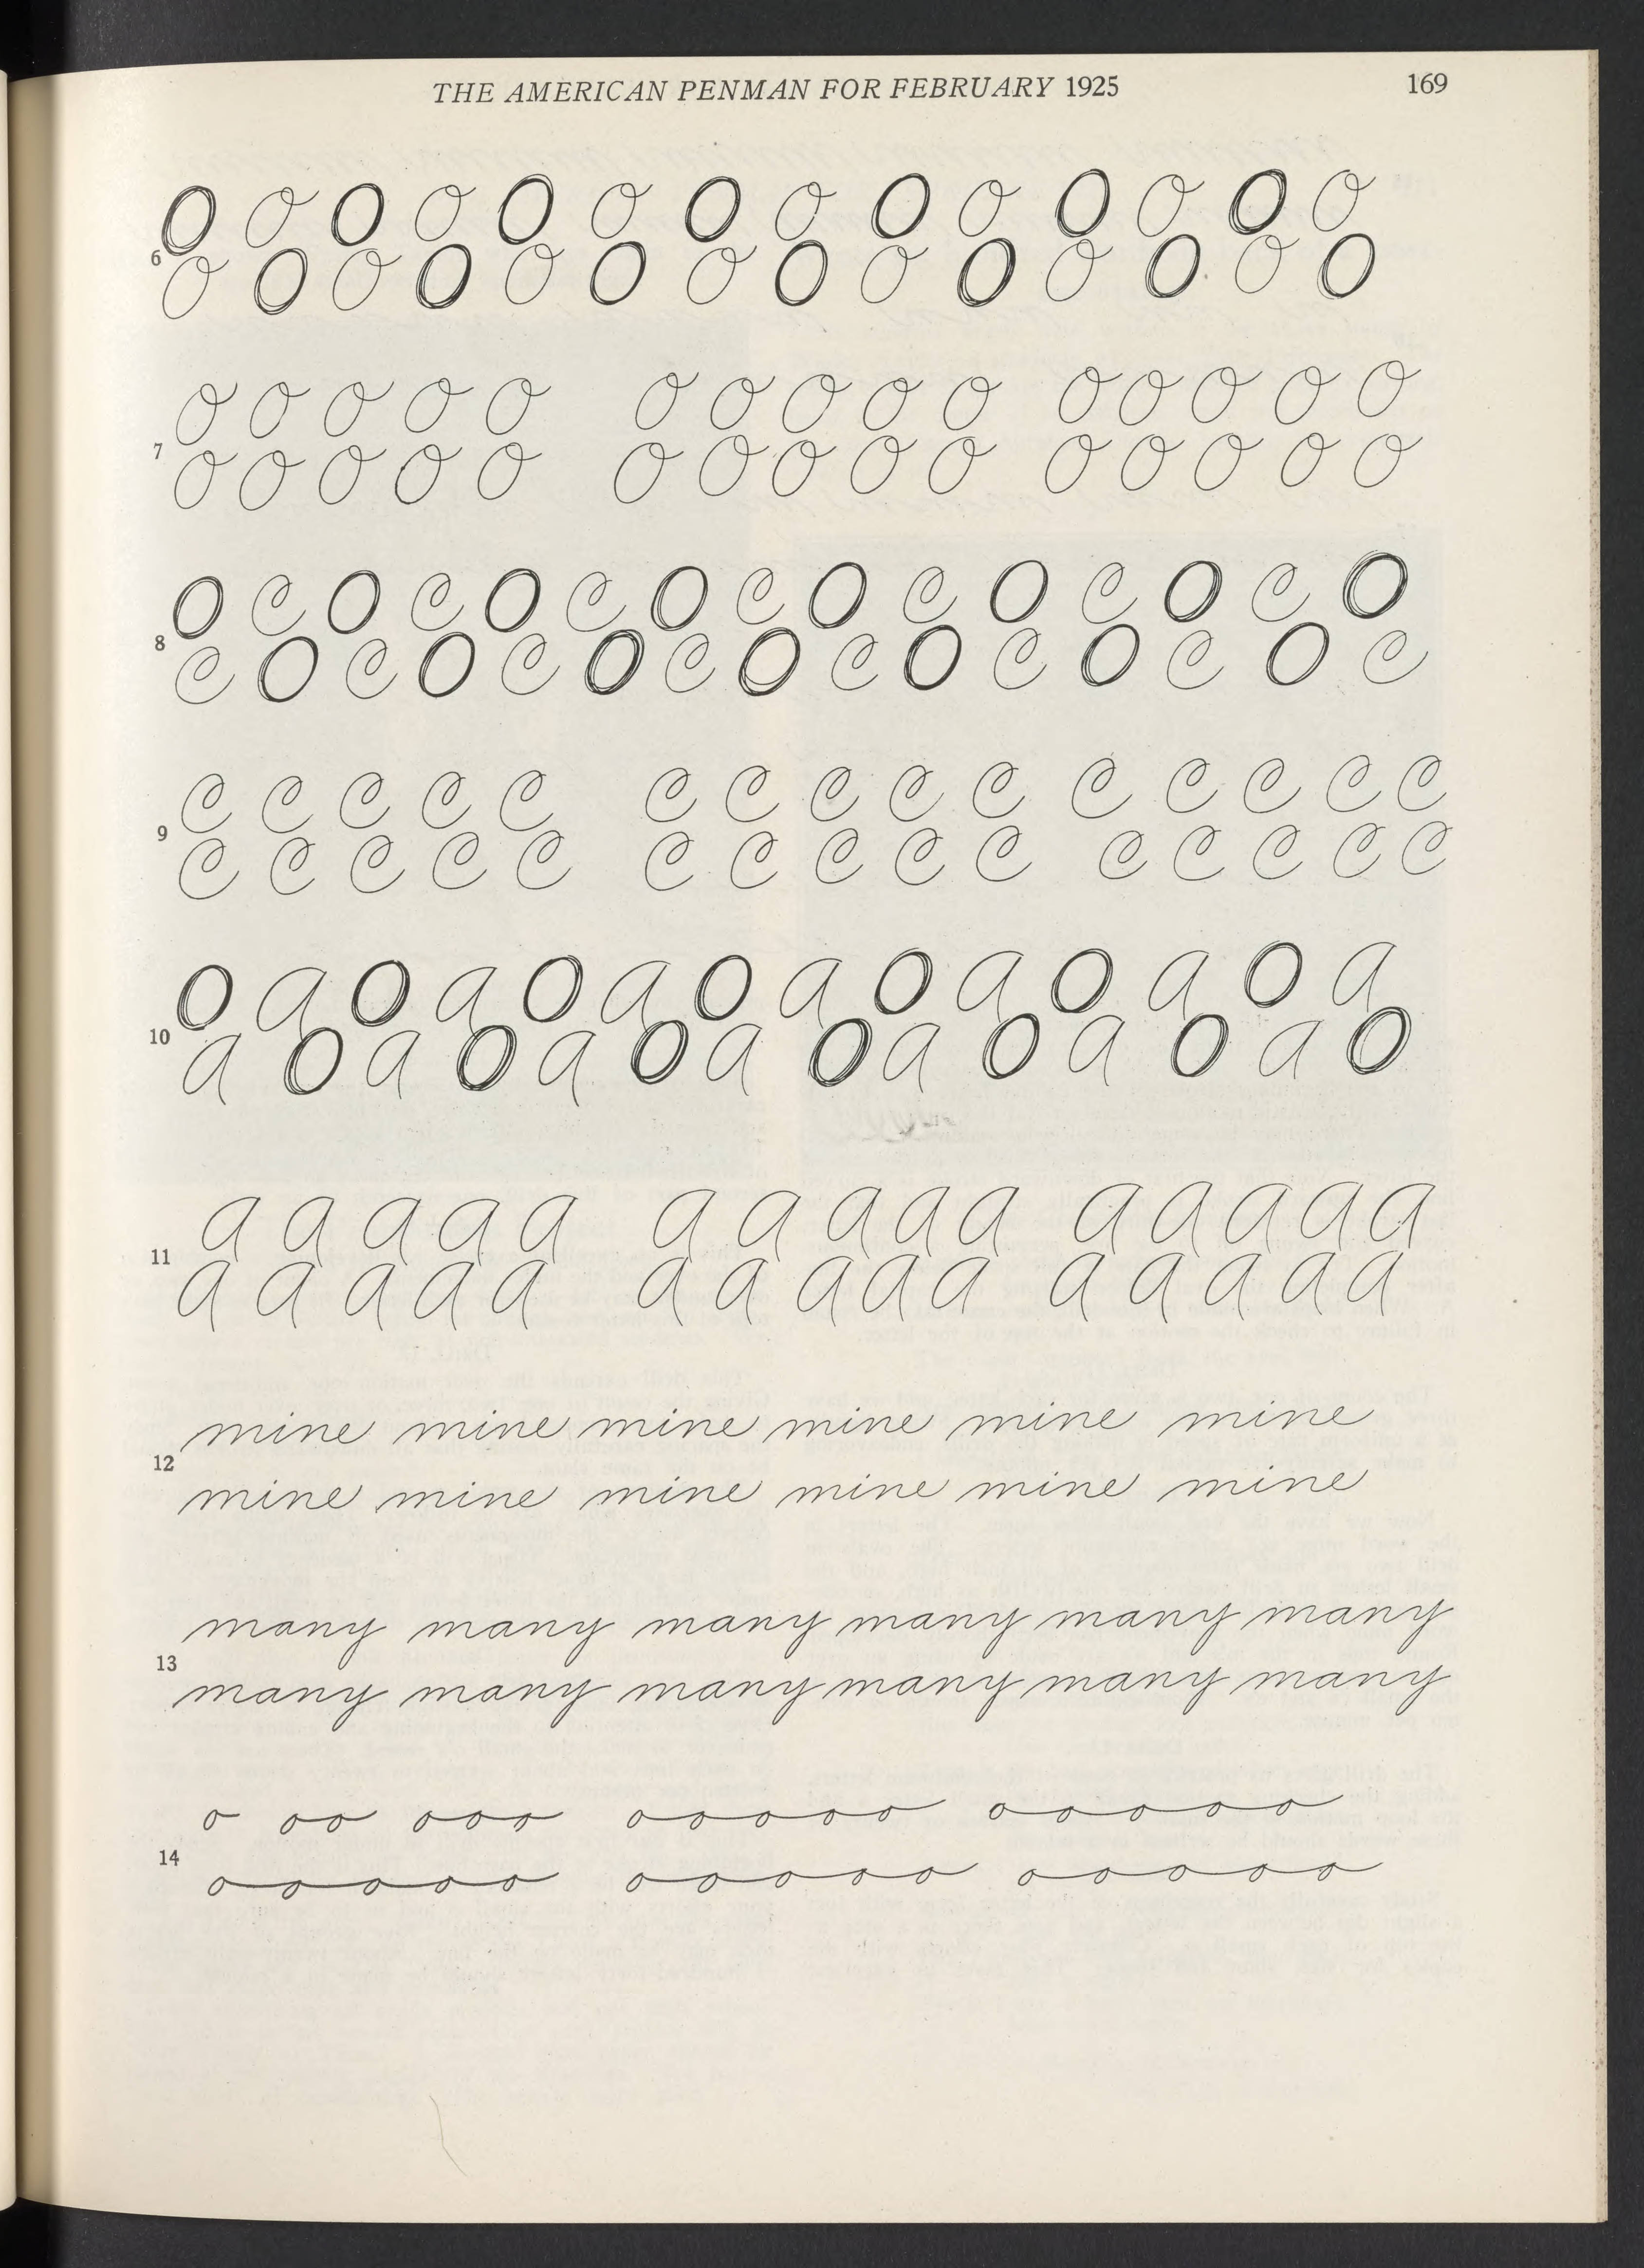 THE AMERICAN PENMAN FOR FEBRUARY 1925 169
O O O O O O O O O O O O O O
6
O O O O O O O O O O O O O O
O O O O O O O O O O O O O O O
7
O O O O O O O O O O O O O O O
O C O C O C O C O C O C O C O
8
C O C O C O C O C O C O C O C
C C C C C C C C C C C C C C C
9
C C C C C C C C C C C C C C C
O a O a O a O a O a O a O a
10
a O a O a O a O a O a O a O
a a a a a a a a a a a a a a a
11
a a a a a a a a a a a a a a a
mine mine mine mine mine mine
12
mine mine mine mine mine mine
many many many many many many
13
many many many many many many
o oo ooo ooooo ooooo
14
ooooo ooooo ooooo